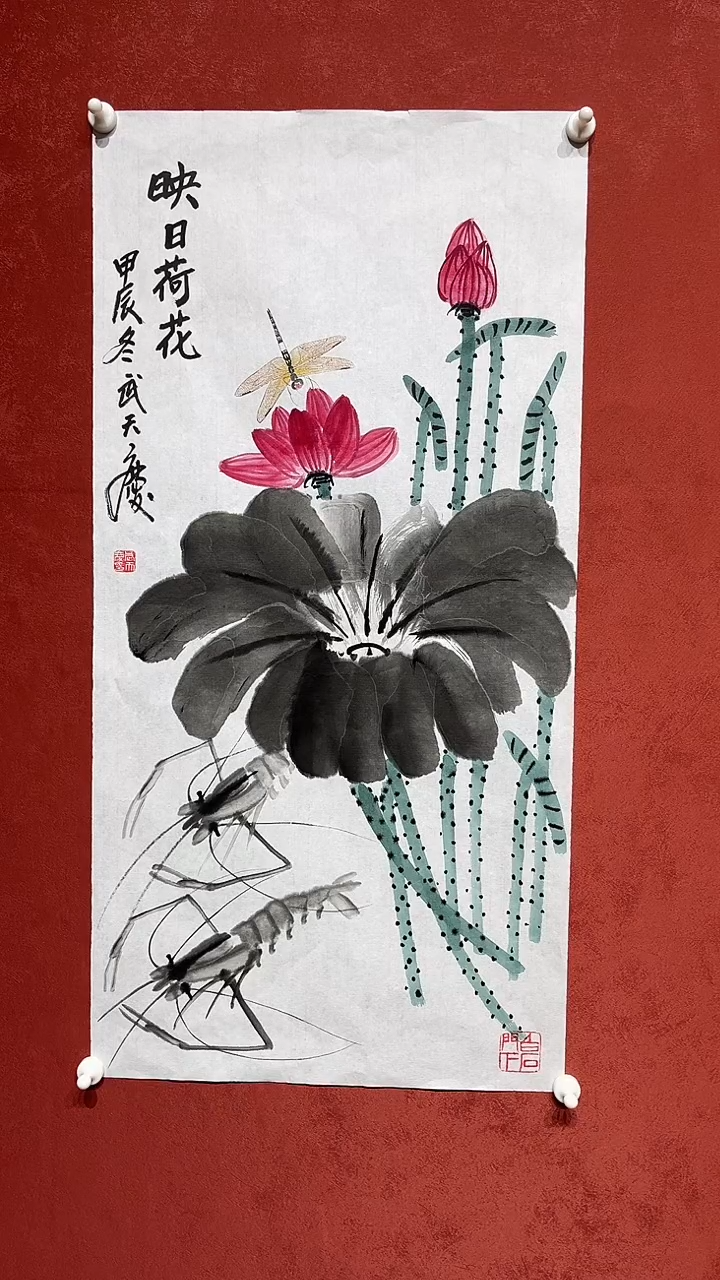 映日荷花
甲辰冬武天慶
白石門下